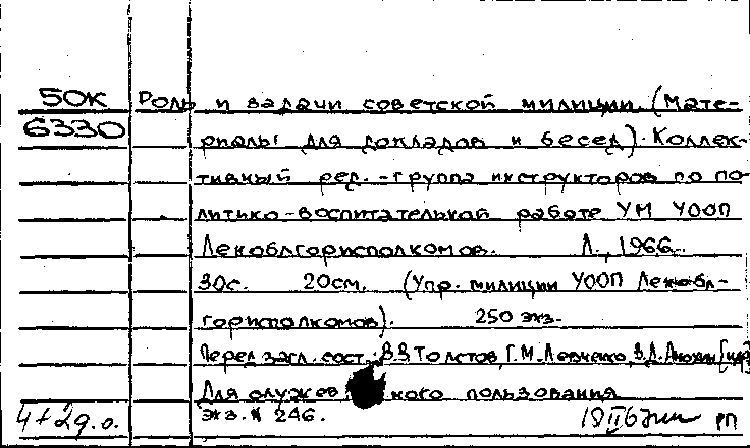 50К Роль и задачи советской милиции. (Мате-
6330 риалы для докладов и бесед). Коллек-
тивный ред. - группа инструкторов по по-
литико-воспитательной работе УМ УООП
Леноблгорисполкомов. Л., 1966.
30с. 20см. (Упр. милиции УООП Ленобл-
горисполкомов). 250 экз.
Перед загл. сост.: В.В Толстов, Г.М. Левченко, В.Д.
Для служеб кого пользования
4+2д.о. экз. № 246. РП